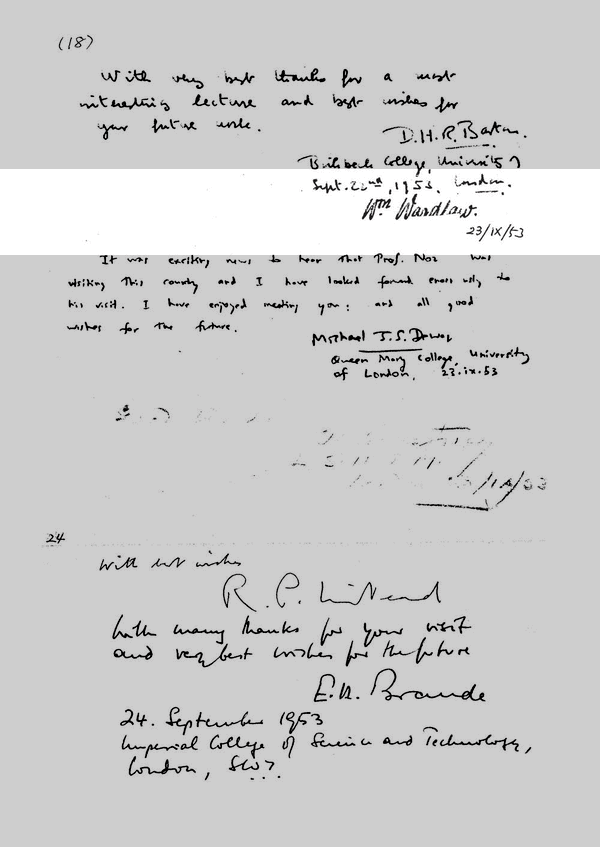 (18)
With very best thanks for a most
interesting lecture and best wishes for
your future work.
D.H.R. Barton.
Birkbeck College, University of
Sept. 22nd, 1953. London.
Wm Wardlaw.
23/IX/53
It was exciting news to hear that Prof. Noz was
visiting this country and I have looked forward enormously to
his visit. I have enjoyed meeting you: and all good
wishes for the future.
Michael J.S. Dewar
Queen Mary College, University
of London, 23.ix.53
24
With best wishes
R. P. Linstead
With many thanks for your visit
and very best wishes for the future
E.A. Braude
24. September 1953
Imperial College of Science and Technology,
London, SW7.